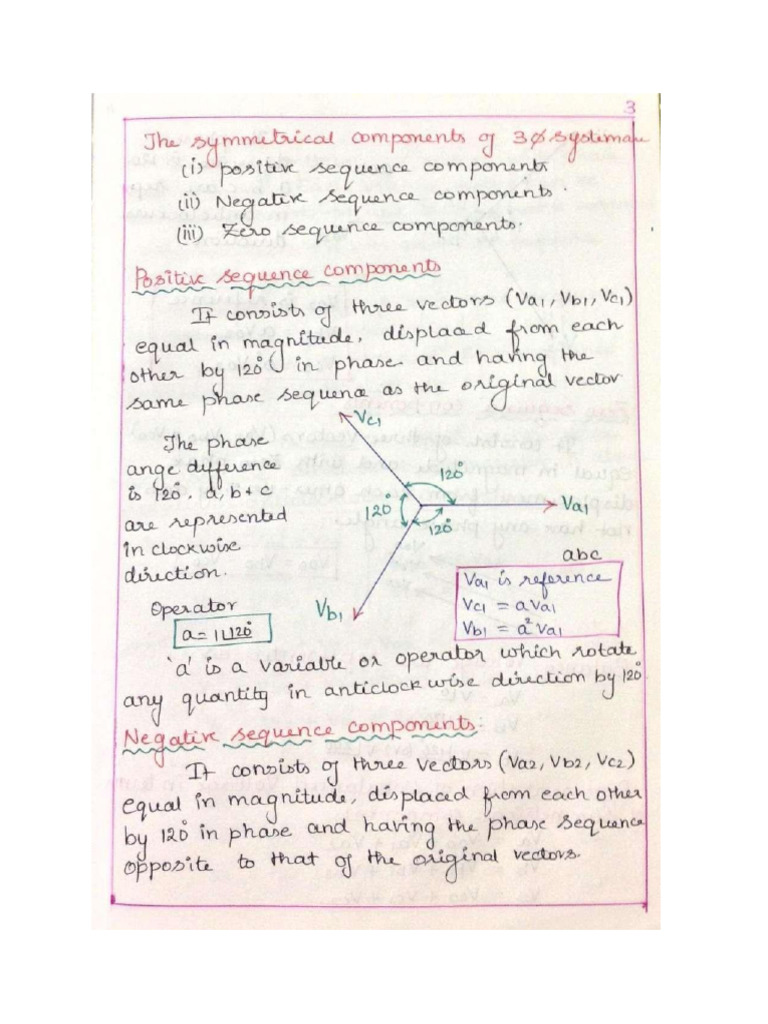 3
The symmetrical components of 3ϕ system are
(i) positive sequence components
(ii) Negative sequence components.
(iii) Zero sequence components.
Positive sequence components
It consists of three vectors (Va1, Vb1, Vc1)
equal in magnitude, displaced from each
other by 120° in phase and having the
same phase sequence as the original vector
Vc1
The phase
ange difference
is 120°. a, b & c
are represented
in clockwise
direction.
120°
120°
120°
Va1
Vb1
abc
Va1 is reference
Vc1 = aVa1
Vb1 = a²Va1
Operator
a = 1∠120°
'a' is a variable or operator which rotate
any quantity in anticlockwise direction by 120°
Negative sequence components:
It consists of three vectors (Va2, Vb2, Vc2)
equal in magnitude, displaced from each other
by 120° in phase and having the phase sequence
opposite to that of the original vectors.